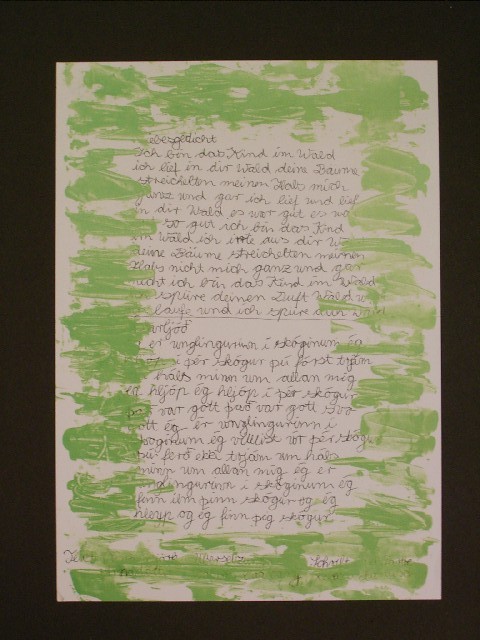 ebesgedicht
Ich bin das Kind im Wald
ich lief in dir Wald deine Bäume
streichelten meinen Hals mich
ganz und gar ich lief und lief
in dir Wald es war gut es wa
so gut ich bin das Kind
im Wald ich irrte aus dir W
deine Bäume streichelten meinen
Hals nicht mich ganz und gar
nicht ich bin das Kind im Wald
spüre deinen Duft Wald
laufe und ich spüre
arljóð
er unglingurinn í skóginum ég
í þér skógur þú fórst trjám
háls minn um allan mig
hljóp ég hljóp í þér skógur
var gott það var gott svo
gott ég er unglingurinn í
skóginum ég villist úr þér skógu
þú ferð ekki trjám um háls
minn um allan mig ég er
unglingurinn í skóginum ég
finn ilm þinn skógur og ég
hleyp og ég finn þig skógur